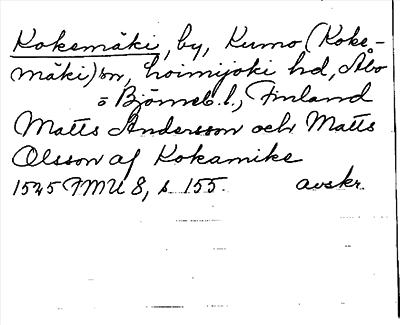 Kokemäki, by, Kumo (Koke-
mäki) sn, Loimijoki hd, Åbo
o Björneb. l., Finland
Matts Andersson och Matts
Olsson af Kokamike
1545 FMU 8, s. 155. avskr.